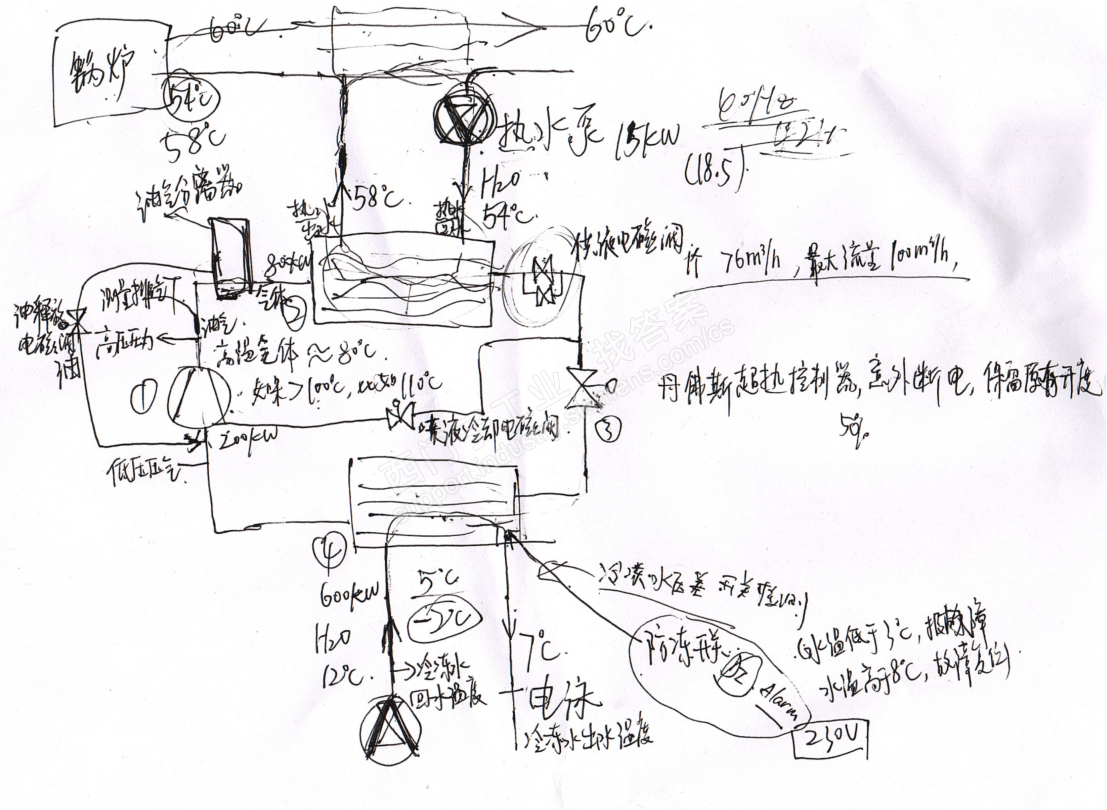 60℃
60℃
锅炉
54℃
58℃
热水泵 15kW
(18.5)
60Hz
油气分离器
58℃
H2O
54℃
热水
热水
供液电磁阀
76m³/h，最大流量100m³/h，
800kW
气体
②
测量排气T
油气
高压压力
高温气体≈80℃
如果>100℃，
110℃
油释放
电磁阀
油
①
喷液冷却电磁阀
③
200kW
低压压气
丹佛斯过热控制器，意外断电，保留原有开度
50%
④
600kW
H2O
12℃
5℃
冷冻水
回水温度
7℃
电泳
冷冻水出水温度
冷冻水压差开关
防冻开关
水温低于3℃，报故障
水温高于8℃，故障复位
Alarm
230V
西门子工业 找答案
support.industry.siemens.com/cs